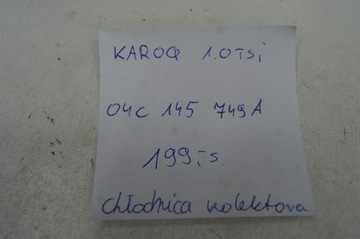 KAROQ 1.0 TSi
04C 145 749A
199,-s
Chłodnica kolektora